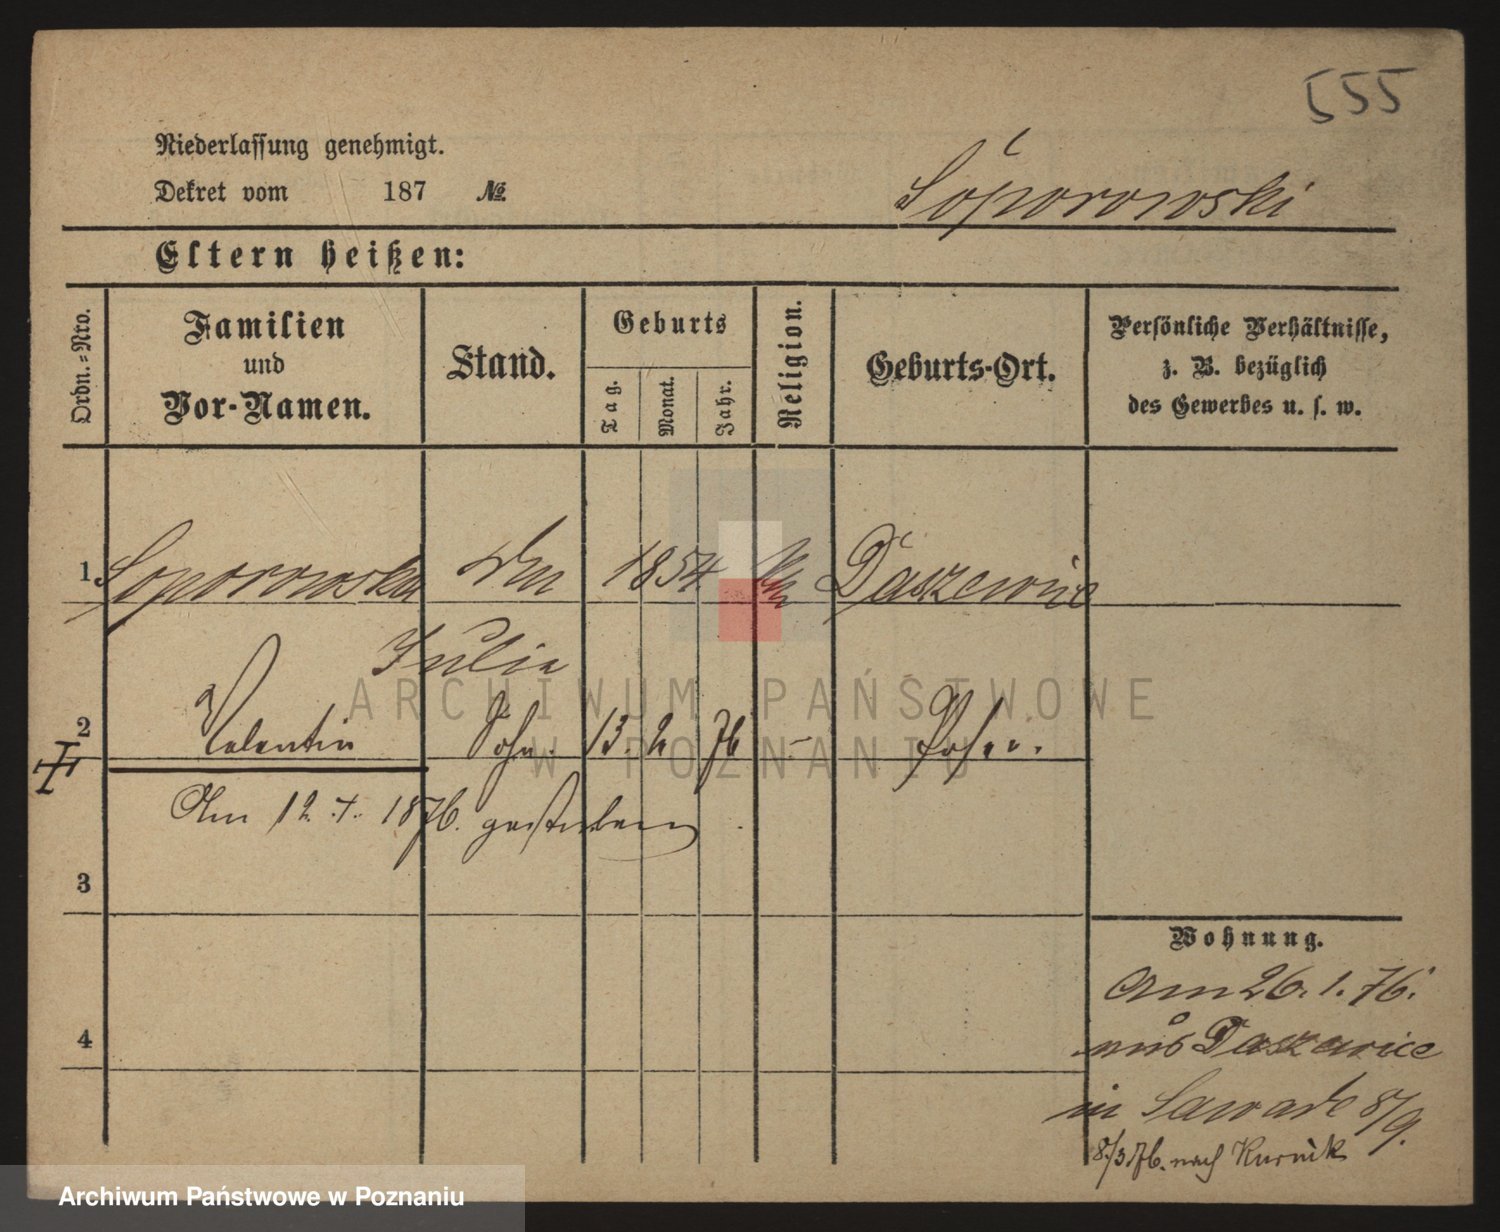 555
Niederlassung genehmigt.
Dekret vom 187 №
Soporowski
Eltern heißen:
Ordn.-Nro.
Familien
und
Vor-Namen.
Stand.
Geburts
Tag.
Monat.
Jahr.
Religion.
Geburts-Ort.
Persönliche Verhältnisse,
z. B. bezüglich
des Gewerbes u. s. w.
1 Soporowska 1854 Daszewice
Julia
2 Valentin Sohn. 13. 2. 76 - Posen.
Am 12. 7. 1876. gestorben
3
4
Wohnung.
Am 26. 1. 76.
aus Daszewice
in Sawade 8/9.
8/3.76. nach Kurnik
ARCHIWUM PAŃSTWOWE
W POZNANIU
Archiwum Państwowe w Poznaniu